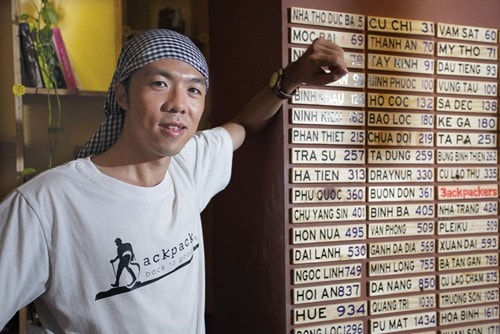 ackpack
back to
NHA THO DUC BA 5
MOC BAI 69
BINH
NINH KIEU
PHAN THIET 215
TRA SU 257
HA TIEN 313
PHU QUOC 360
CHU YANG SIN 401
HON NUA 495
DAI LANH 530
NGOC LINH 749
HOI AN 837
HUE 934
CU CHI 31
THANH AN 70
TAY NINH 91
BINH PHUOC 100
HO COC 132
BAO LOC 180
CHUA DOI 219
TA DUNG 259
DRAYNUR 330
BUON DON 361
BINH BA 405
VAN PHONG 509
GANH DA DIA 569
MINH LONG 755
DA NANG 850
QUANG TRI 1030
PU MAT 1434
VAM SAT 60
MY THO 71
DAU TIENG
VUNG TAU 100
SA DEC 138
KE GA 180
TA PA 251
BUNG BINH THIEN
CU LAO THU 335
3ackpackers
NHA TRANG
PLEIKU
XUAN DAI 599
SA TAN GAN
CU LAO CHAM
TRUONG SON